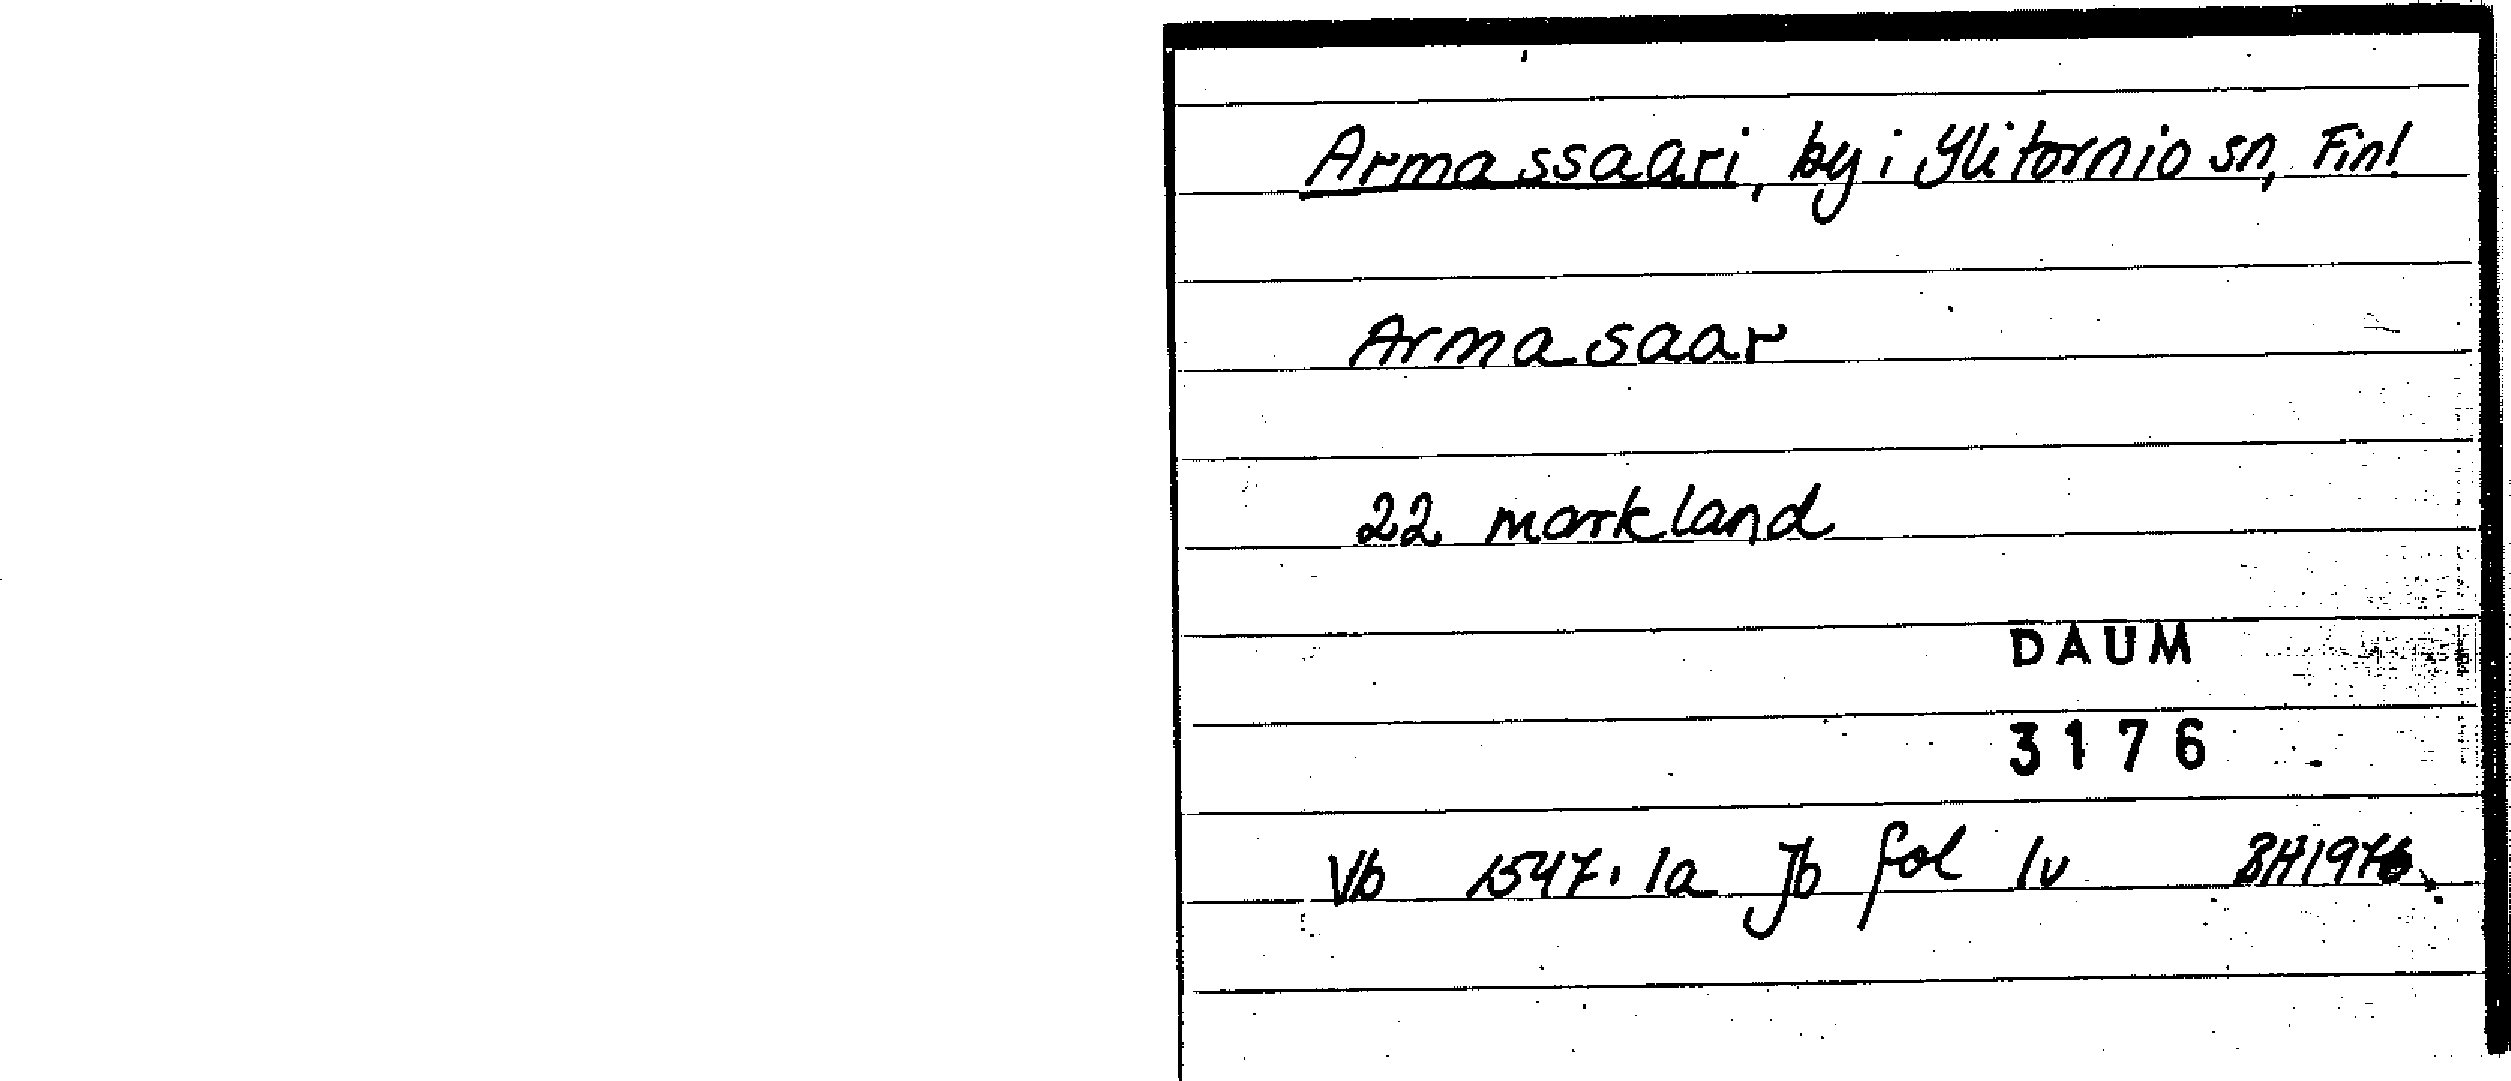 Armassaari, by i Ylitornio sn, Finl
Armasaar
22 markland
DAUM
3176
Vb 1547:1a Jb fol 1v BH1976